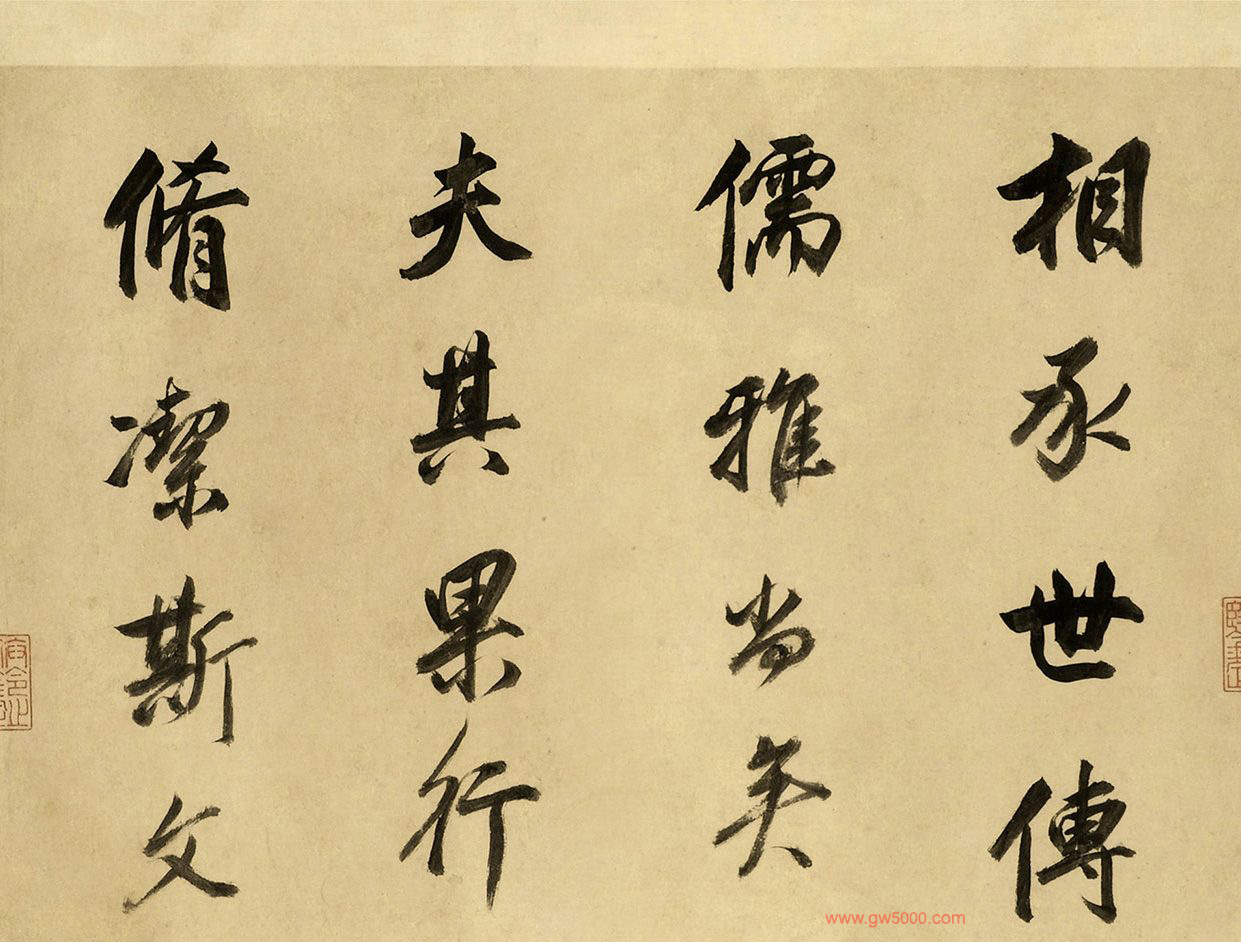 相承世傳
儒雅尚矣
夫其果行
脩潔斯文
www.gw5000.com